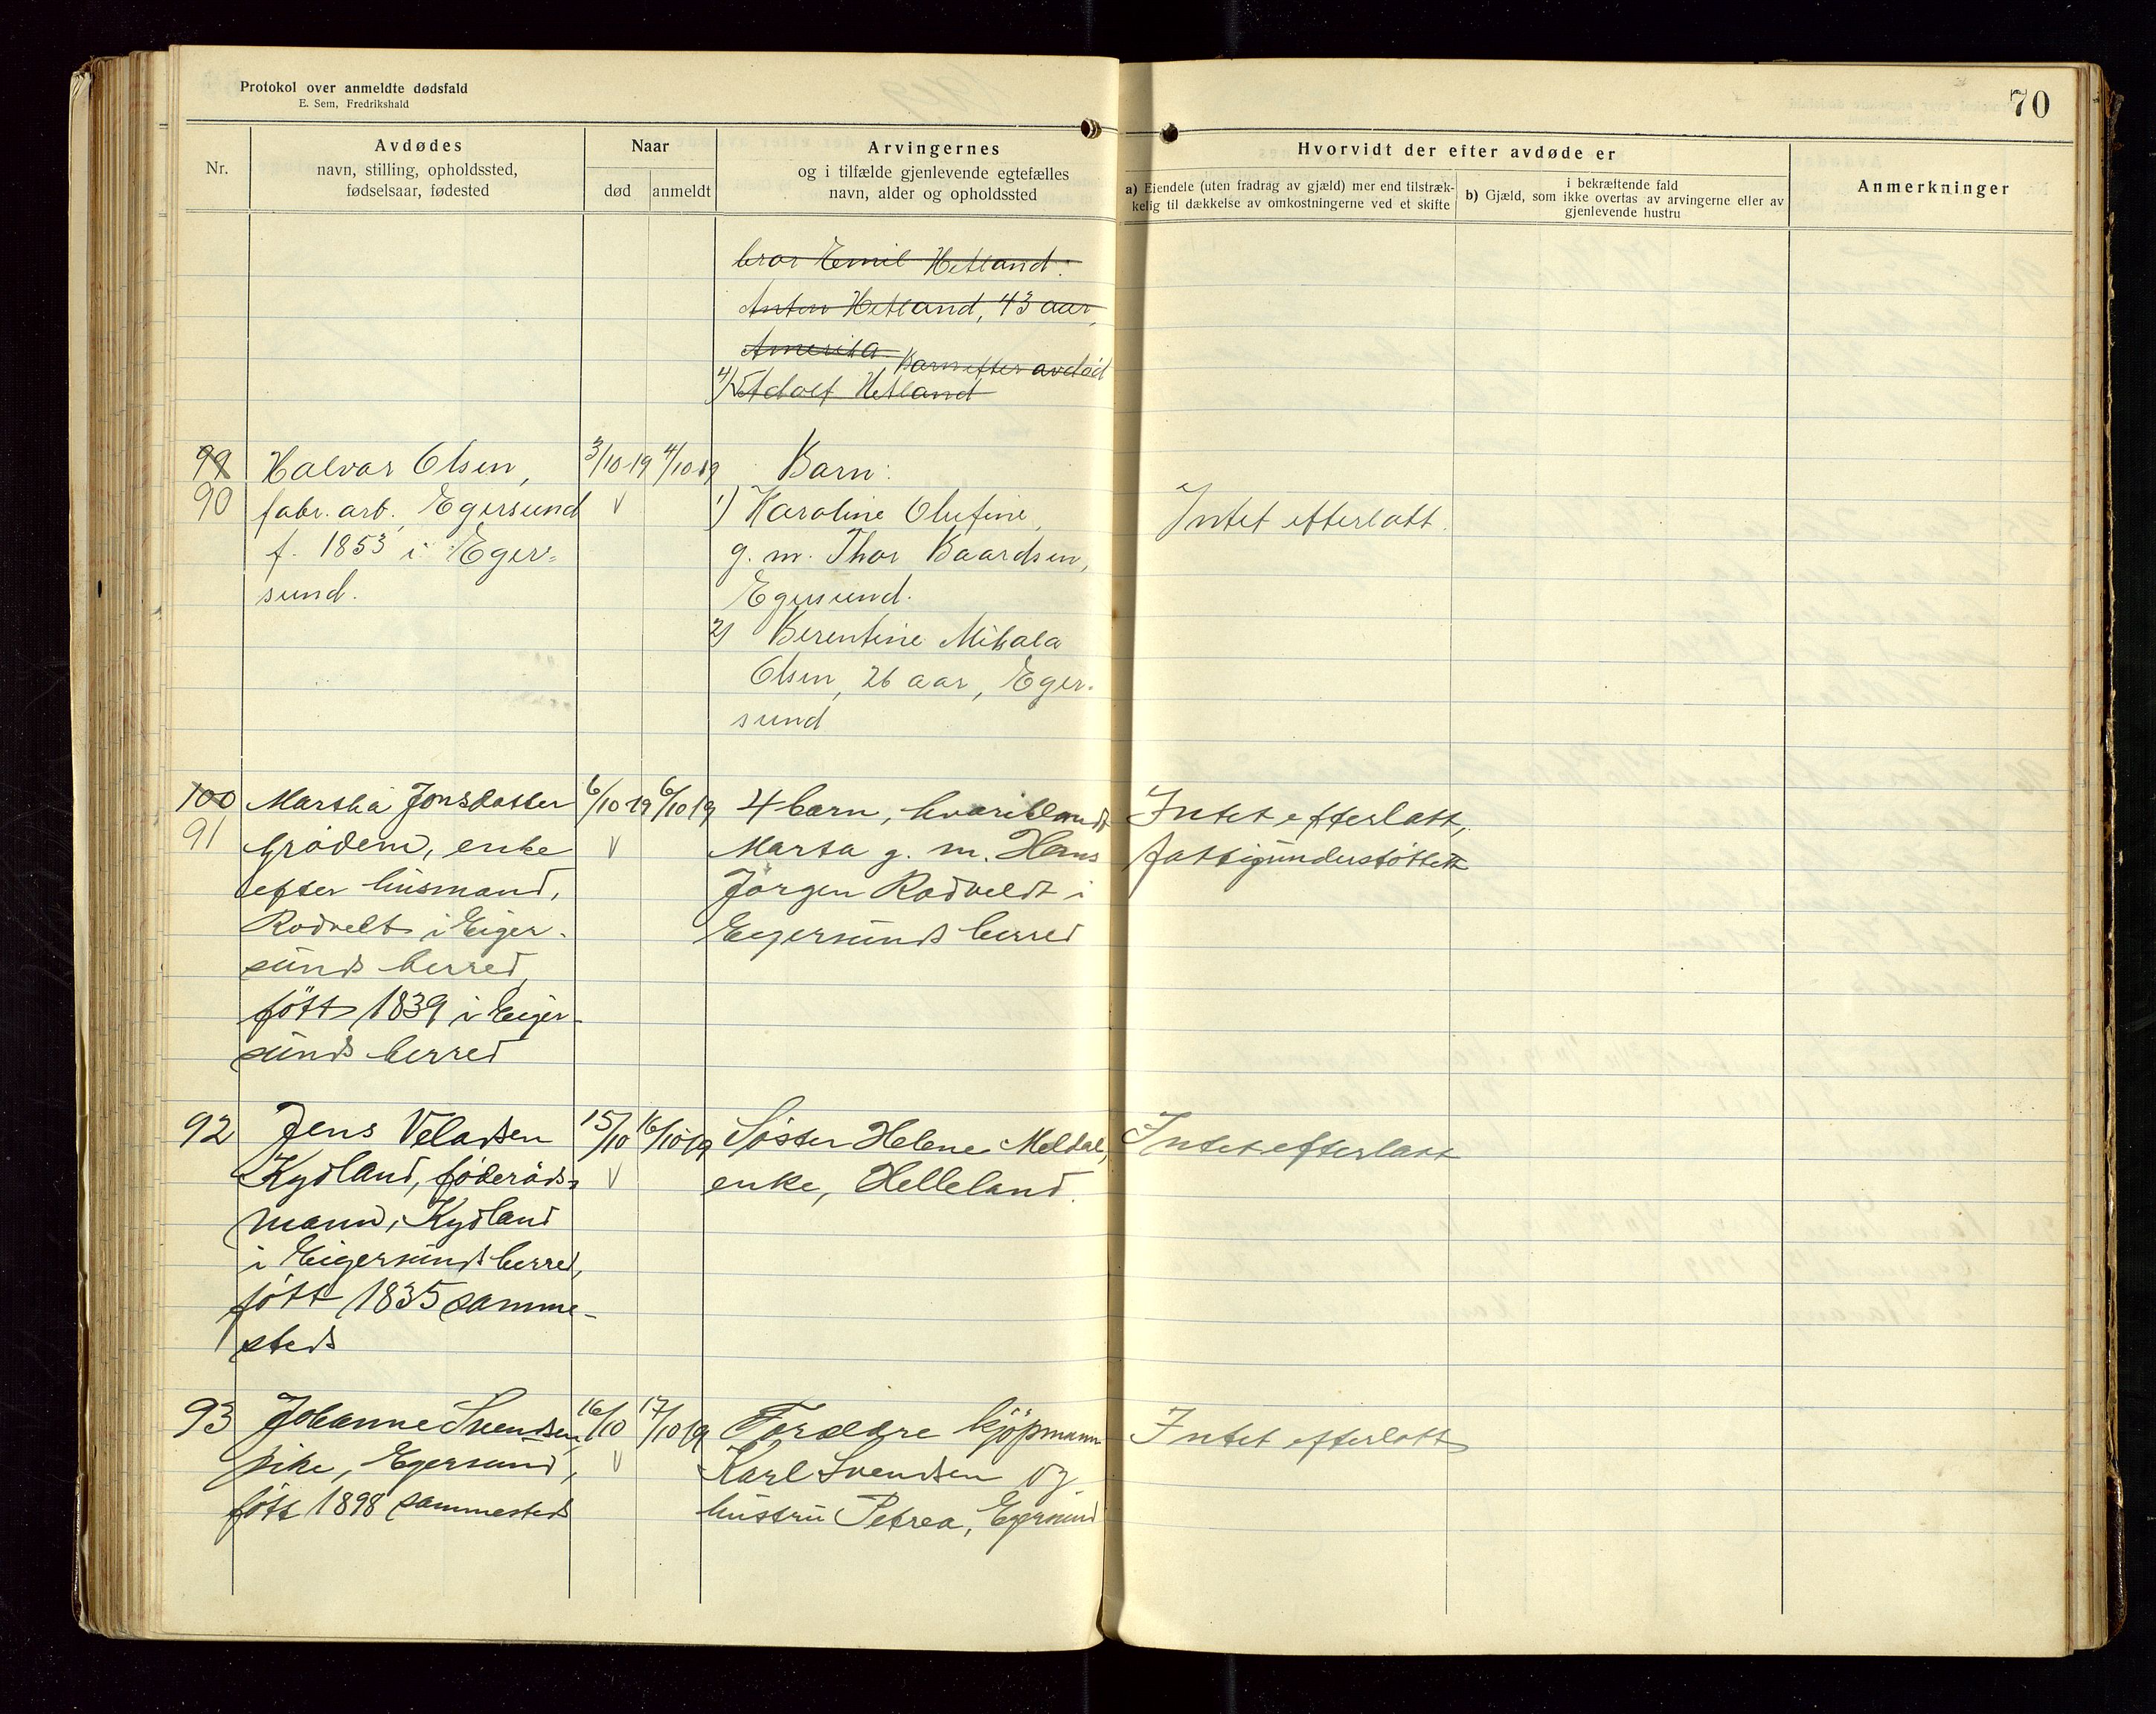 Protokol over anmeldte dødsfald
E. Sem, Fredrikshald
70
Nr.
Avdødes
navn, stilling, opholdssted,
fødselsaar, fødested
Naar
død
anmeldt
Arvingernes
og i tilfælde gjenlevende egtefælles
navn, alder og opholdssted
Hvorvidt der efter avdøde er
a) Eiendele (uten fradrag av gjæld) mer end tilstræk-
kelig til dækkelse av omkostningerne ved et skifte
i bekræftende fald
b) Gjæld, som ikke overtas av arvingerne eller av
gjenlevende hustru
Anmerkninger
bror Emil Hetland:
Anton Hetland, 43 aar,
Amerika.
Barn efter avdød
4) Adolf Hetland
99
90
Halvar Olsen,
fabr. arb., Egersund
f. 1853 i Eger=
sund.
3/10 19
4/10 19
Barn:
1) Karoline Olufine,
g. m. Thor Baardsen,
Egersund.
2) Berentine Mikala
Olsen, 26 aar, Eger-
sund
Intet efterlatt.
100
91
Martha Jonsdatter
Grødem, enke
efter husmand,
Rodvelt i Eiger-
sunds herred,
født 1839 i Eiger-
sunds herred
6/10 19
6/10 19
4 barn, hvoriblandt
Marta g. m. Hans
Jørgen Rodveldt i
Eigersunds herred
Intet efterlatt,
fattigunderstøttet
92
Jens Veladsen
Kydland, føderåds-
mann, Kydland
i Eigersunds herred,
født 1835 samme-
steds
15/10
16/10 19
Søster Helene Meldal,
enke, Helleland.
Intet efterlatt
93
Johanne Svendsen,
pike, Egersund,
født 1898 sammesteds
16/10
17/10 19
Forældre kjøpmann
Karl Svendsen og
hustru Petrea, Egersund
Intet efterlatt